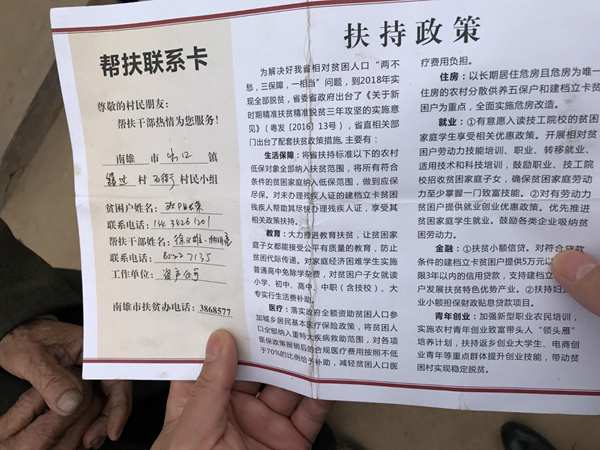 帮扶联系卡
尊敬的村民朋友:
帮扶干部热情为您服务!
南雄 市 珠口 镇
村 石街 村民小组
贫困户姓名:
联系电话:
帮扶干部姓名:
联系电话:
工作单位:
南雄市扶贫办电话:3868577
扶持政策
为解决好我省相对贫困人口“两不
愁,三保障,一相当”问题,到2018年实
现全部脱贫,省委省政府出台了《关于新
时期精准扶贫精准脱贫三年攻坚的实施意
见》(粤发〔2016〕13号),省直相关部
门出台了配套扶贫政策措施,主要有:
生活保障:将省扶持标准以下的农村
低保对象全部纳入扶贫范围,将所有符合
条件的贫困家庭纳入低保范围,做到应保
尽保。对未办理残疾人证的建档立卡贫困
残疾人帮助其尽快办理残疾人证,享受其
相关政策扶持。
教育:大力推进教育扶贫,让贫困家
庭子女都能接受公平有质量的教育,防止
贫困代际传递。对家庭经济困难学生实施
普通高中免除学杂费,对贫困户子女就读
小学、初中、高中、中职(含技校)、大
专实行生活费补助。
医疗:落实政府全额资助贫困人口参
加城乡居民基本医疗保险政策,将贫困人
口全额纳入重特大疾病救助范围,对各项
医保政策报销后的合规医疗费用按照不低
于70%的比例给予补助,减轻贫困人口医
疗费用负担。
住房:以长期居住危房且危房为唯一
住房的农村分散供养五保户和建档立卡贫
困户为重点,全面实施危房改造。
就业:①有意愿入读技工院校的贫困
家庭学生享受相关优惠政策。开展相对贫
困户劳动力技能培训、职业、转移就业、
适用技术和科技培训,鼓励职业、技工院
校招收贫困家庭子女,确保贫困家庭劳动
力至少掌握一门致富技能。②对有劳动力
贫困户提供就业创业优惠政策。优先推进
贫困家庭学生就业。鼓励各类企业吸纳贫
困劳动力。
金融:①扶贫小额信贷。对符合贷款
条件的建档立卡贫困户提供5万元以
限3年以内的信用贷款,支持建档立
户发展扶贫特色优势产业。②扶持妇
业小额担保财政贴息贷款项目。
青年创业:加强新型职业农民培训,
实施农村青年创业致富带头人“领头雁”
培养计划,扶持返乡创业大学生、电商创
业青年等重点群体提升创业技能,带动贫
困村实现稳定脱贫。